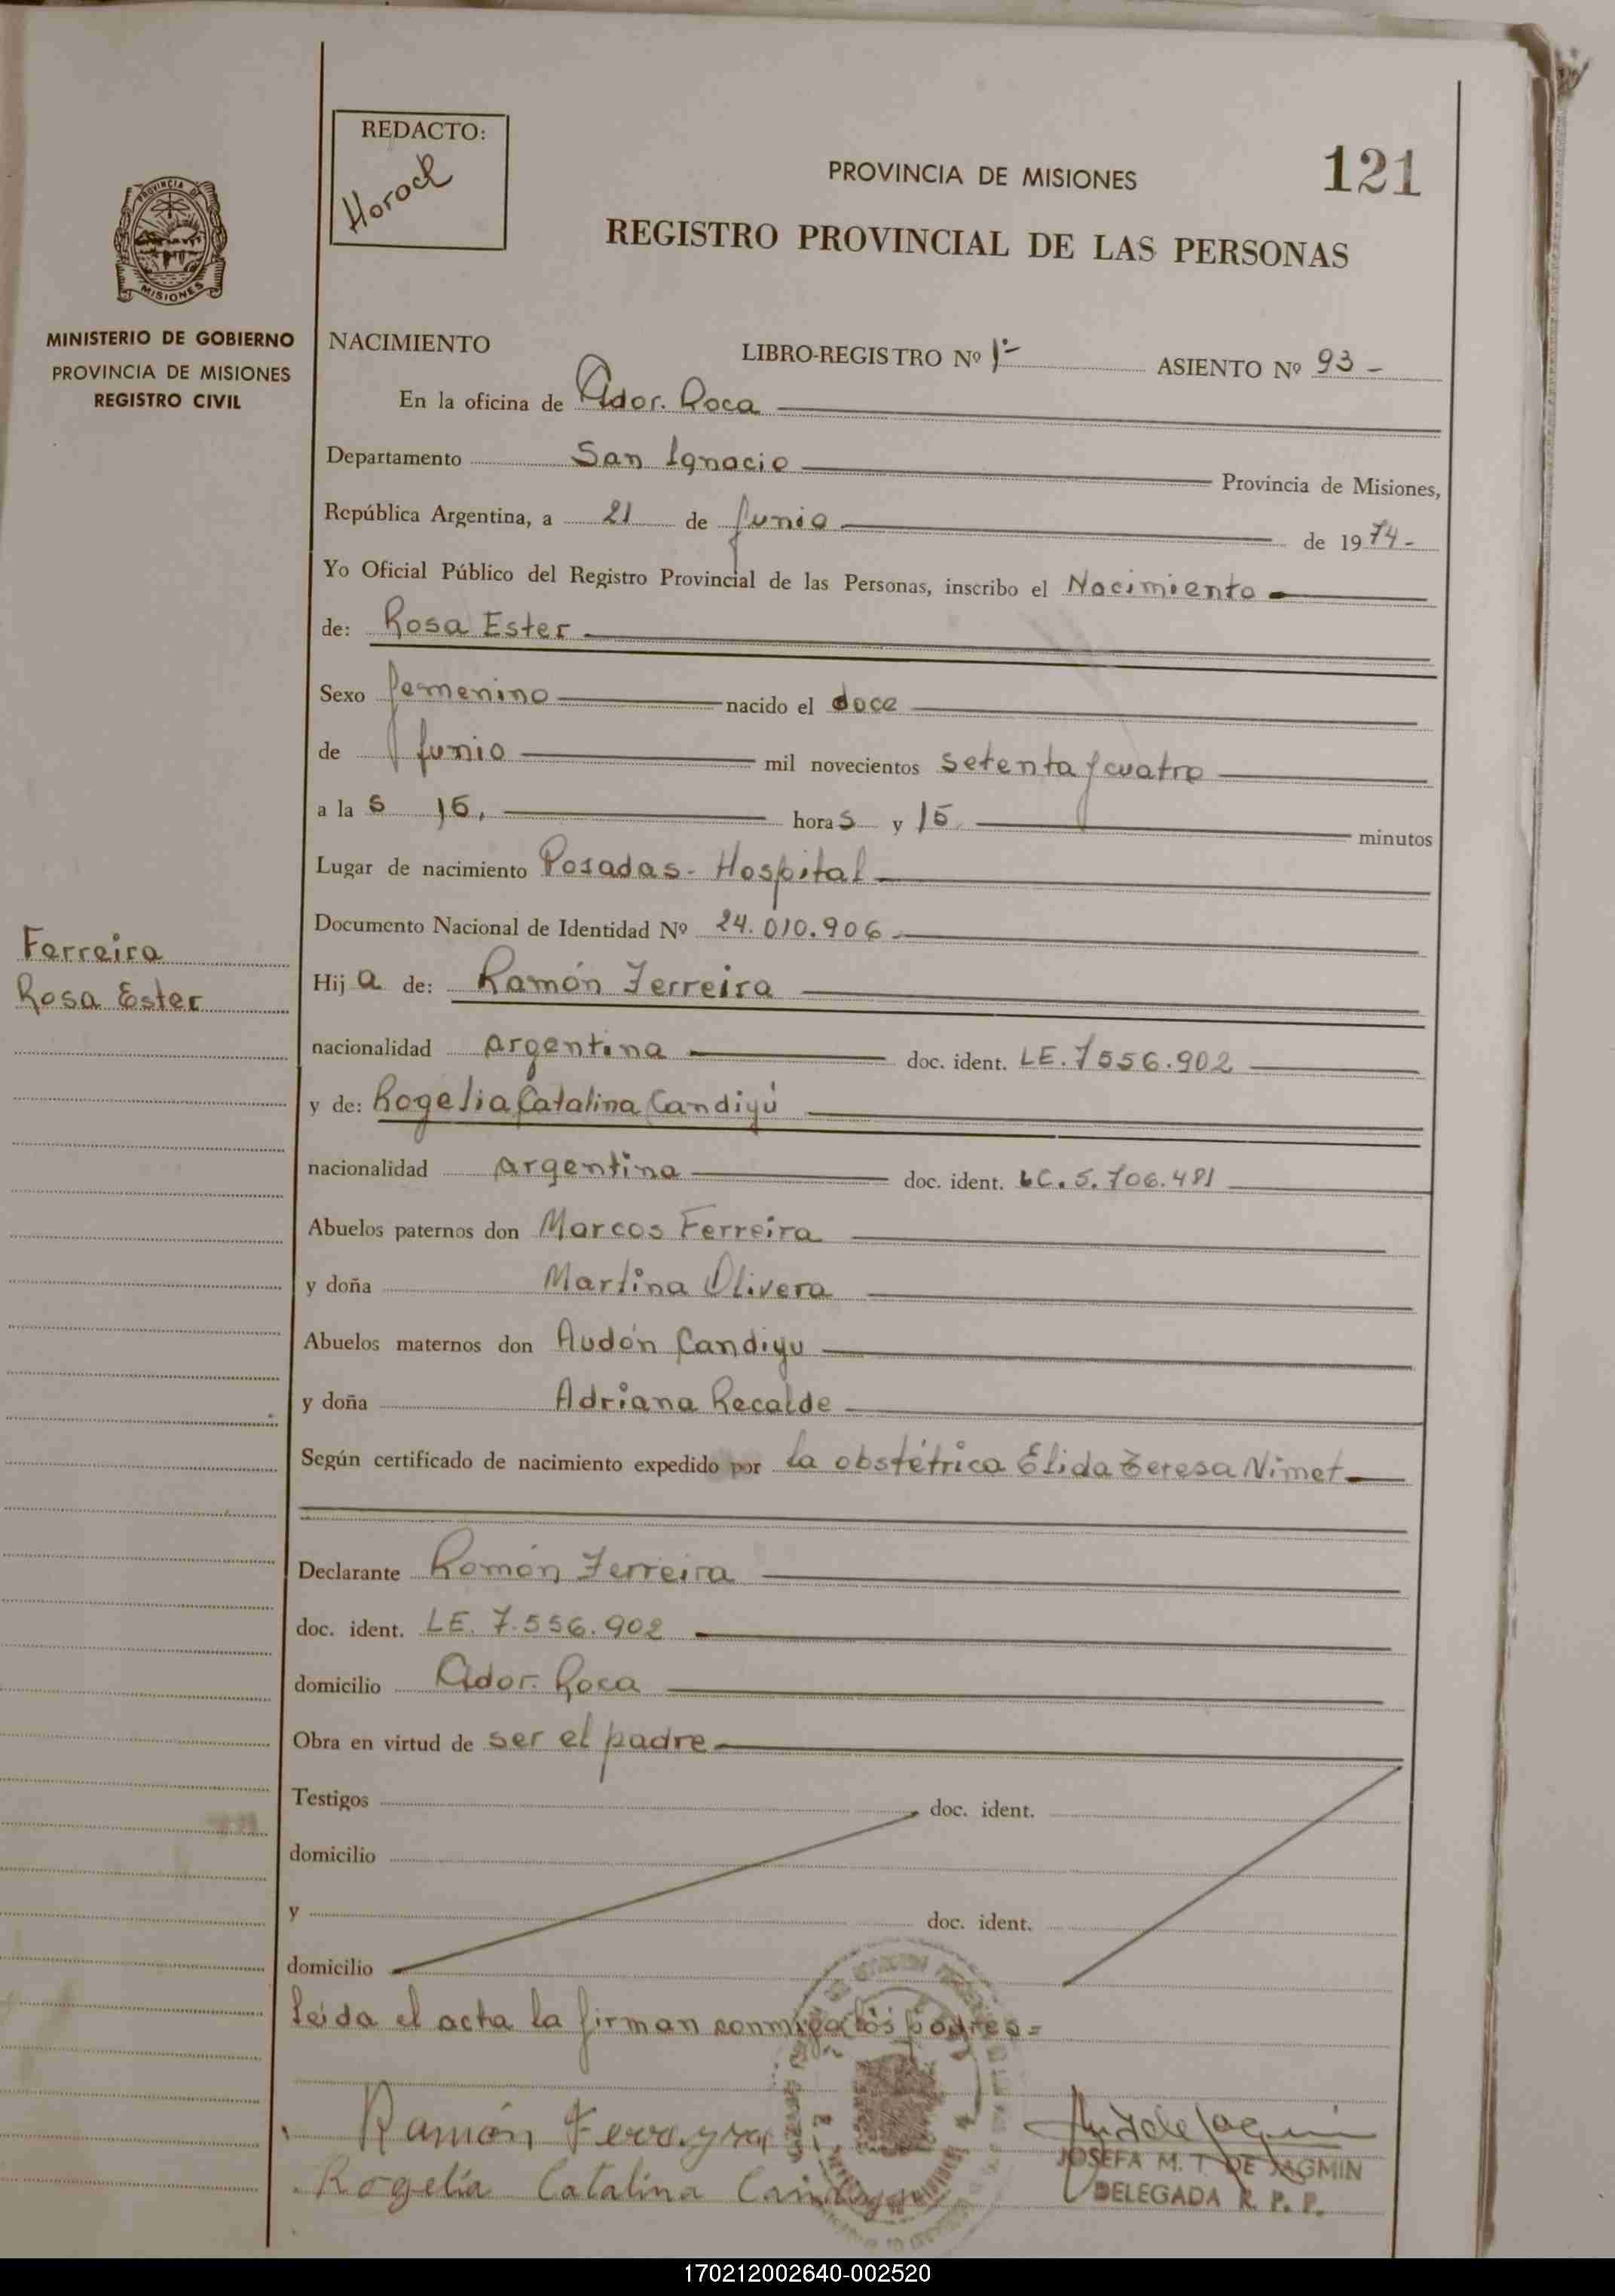 REDACTO:
Horock
PROVINCIA DE MISIONES
121
REGISTRO PROVINCIAL DE LAS PERSONAS
PROVINCIA DE MISIONES
MINISTERIO DE GOBIERNO
PROVINCIA DE MISIONES
REGISTRO CIVIL
NACIMIENTO LIBRO-REGISTRO Nº 1º- ASIENTO Nº 93 -
En la oficina de Gdor. Roca
Departamento San Ignacio Provincia de Misiones,
República Argentina, a 21 de Junio de 1974-
Yo Oficial Público del Registro Provincial de las Personas, inscribo el Nacimiento
de: Rosa Ester
Sexo femenino nacido el doce
de Junio mil novecientos setenta y cuatro
a la s 15, hora s y 15 minutos
Lugar de nacimiento Posadas - Hospital
Documento Nacional de Identidad Nº 24.010.906
Ferreira
Rosa Ester
Hij a de: Ramón Ferreira
nacionalidad argentina doc. ident. LE. 7556.902
y de: Rogelia Catalina Candiyú
nacionalidad argentina doc. ident. LC. 5.706.481
Abuelos paternos don Marcos Ferreira
y doña Martina Olivera
Abuelos maternos don Audón Candiyu
y doña Adriana Recalde
Según certificado de nacimiento expedido por la obstétrica Elida Teresa Nimet
Declarante Ramón Ferreira
doc. ident. LE. 7.556.902
domicilio Gdor. Roca
Obra en virtud de ser el padre
Testigos doc. ident.
domicilio
y doc. ident.
domicilio
Leída el acta la firman conmigo los padres=
Ramón Ferreyra
Rogelia Catalina Candiyu
JOSEFA M. T. DE JAGMIN
DELEGADA R. P. P.
170212002640-002520